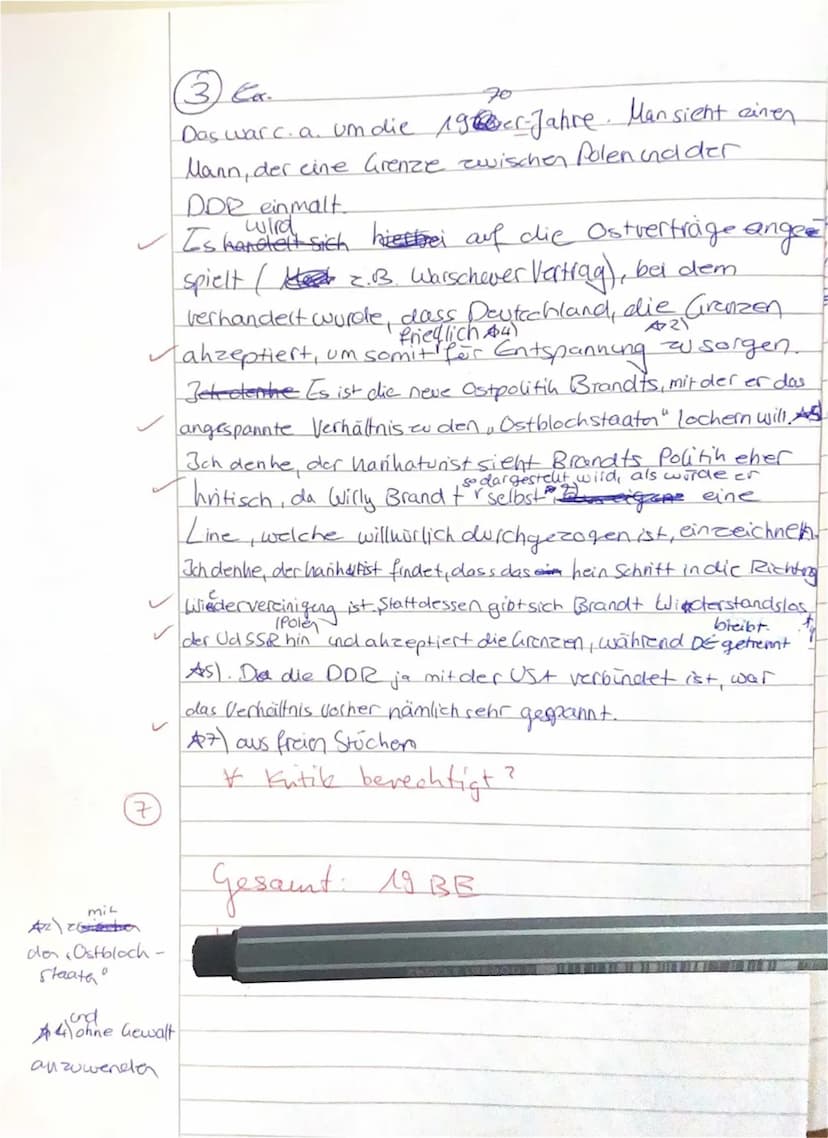 ③ Ka.
Das war c.a. um die 1970er-Jahre. Man sieht einen
Mann, der eine Grenze zwischen Polen und der
DDR einmalt.
Es handelt sich wird hierbei auf die Ostverträge ange-
spielt ( z.B. Warschauer Vertrag), bei dem
verhandelt wurde, dass Deutschland, die Grenzen
akzeptiert, um somit friedlich A4) für Entspannung A2) zu sorgen.
Ich denke Es ist die neue Ostpolitik Brandts, mit der er das
angespannte Verhältnis zu den „Ostblockstaaten“ lockern will. A5)
Ich denke, der Karikaturist sieht Brandts Politik eher
kritisch, da Willy Brandt so dargestellt wird, als würde er selbst A7) eine
Line, welche willkürlich durchgezogen ist, einzeichnen.
Ich denke, der Karikaturist findet, dass das kein Schritt in die Richtung
Wiedervereinigung ist. Stattdessen gibt sich Brandt Wiederstandslos
der UdSSR (Polen) hin und akzeptiert die Grenzen, während DE getrennt bleibt.
A5). Da die DDR ja mit der USA verbündet ist, war
das Verhältnis vorher nämlich sehr gespannt.
A7) aus freien Stücken
Kritik berechtigt?
⑦
Gesamt: 19 BE
A2) mit
den „Ostblock-
staaten“
A4) und ohne Gewalt
anzuwenden